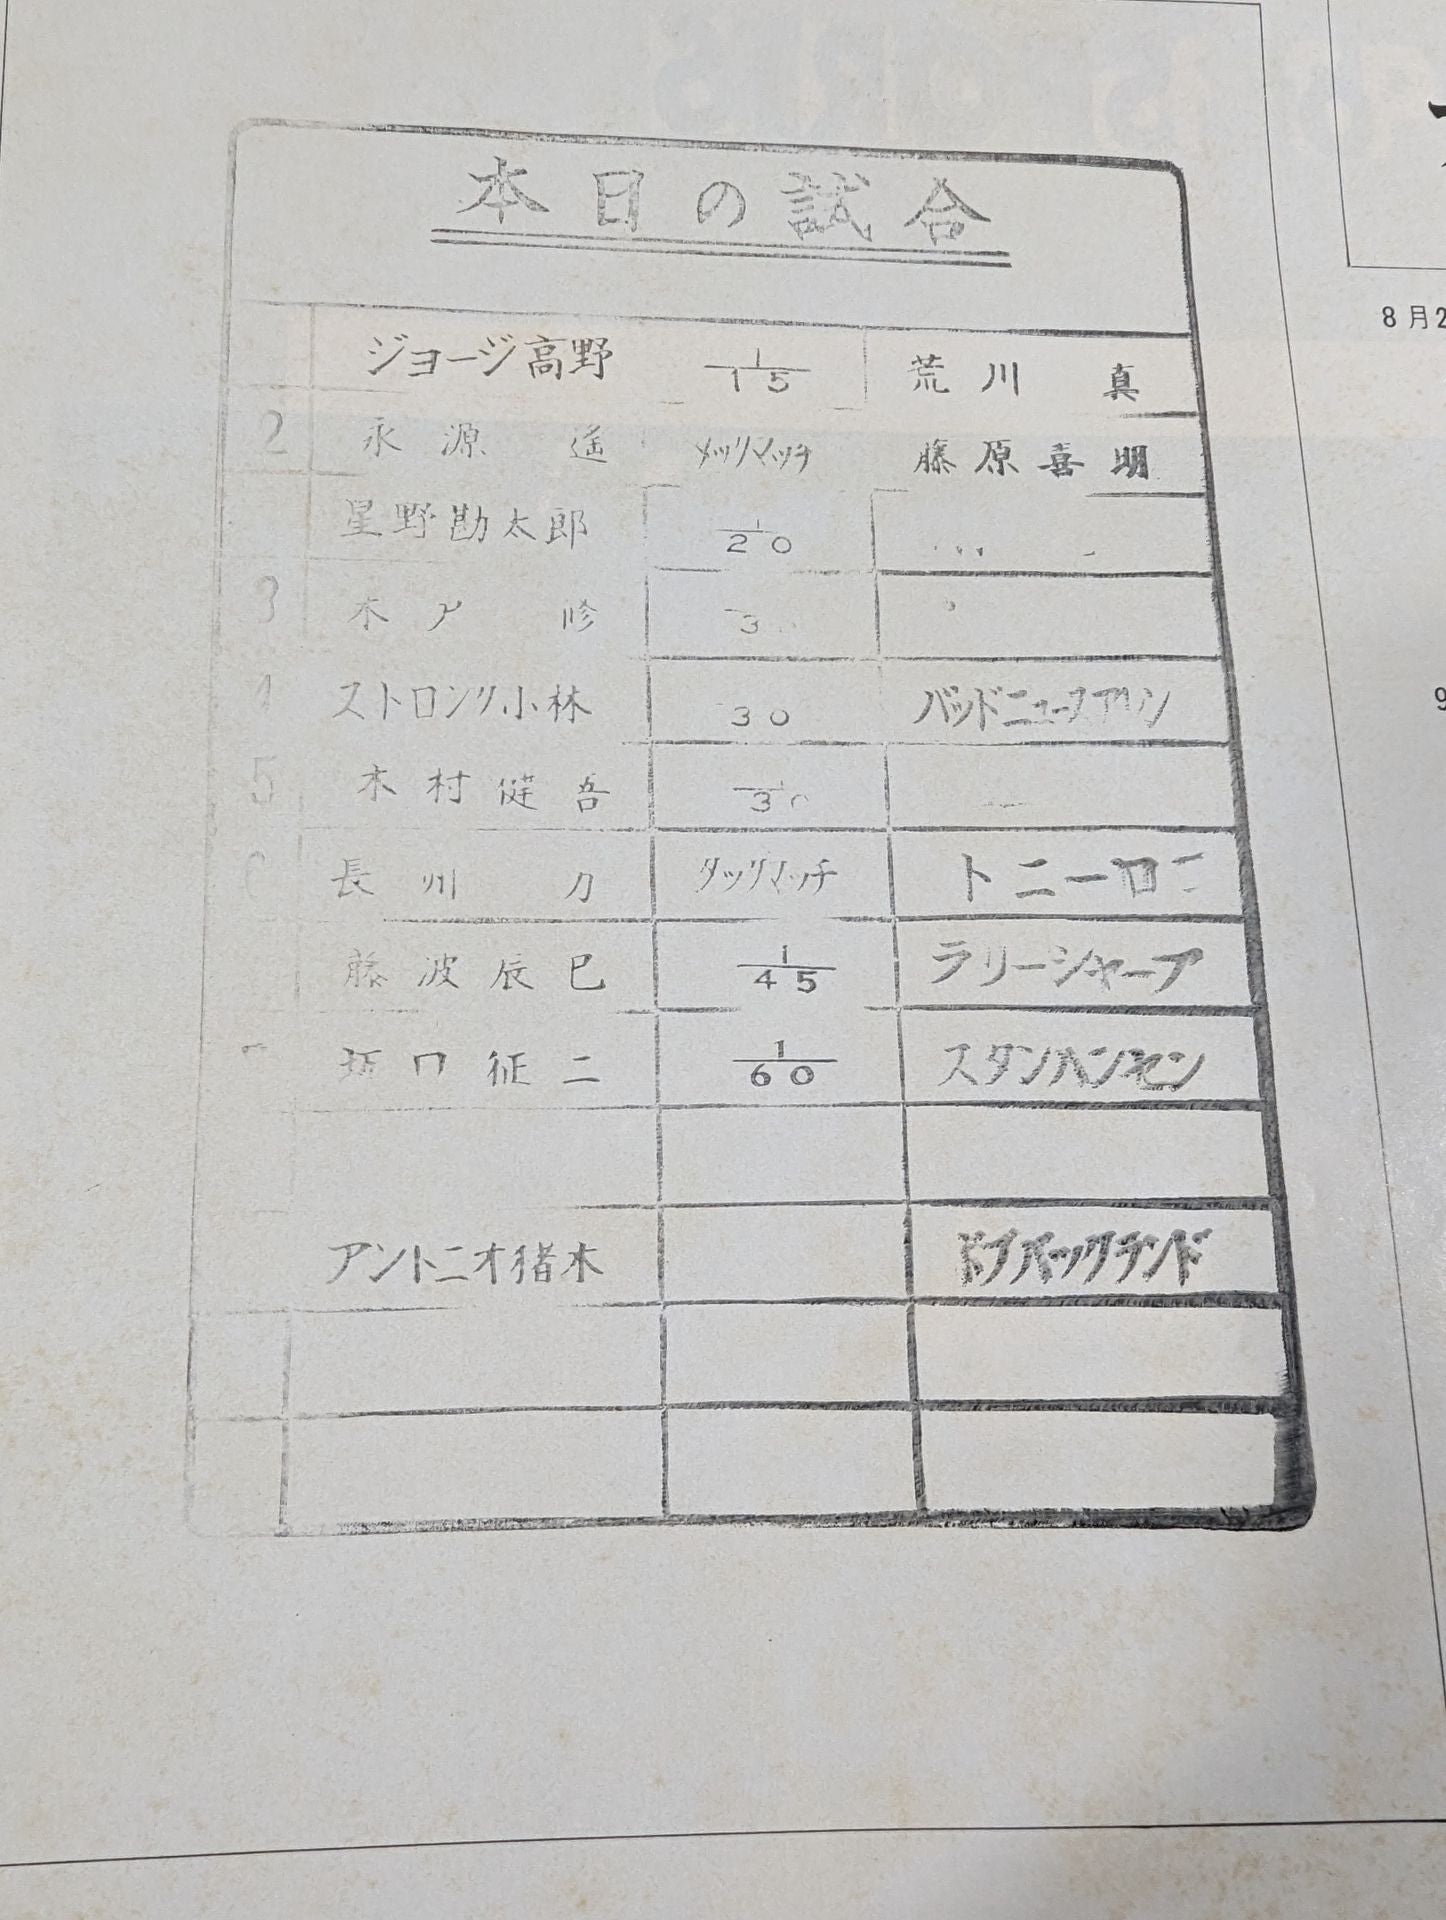 本日の試合
ジョージ高野 1/15 荒川真
2 永源遥 タッグマッチ 藤原喜明
星野勘太郎 1/20
3 木戸修 3
ストロング小林 30 バッドニュースアレン
5 木村健吾 30
長州力 タッグマッチ トニーロコ
藤波辰巳 1/45 ラリーシャープ
坂口征二 1/60 スタンハンセン
アントニオ猪木 ボブバックランド
8月2
9